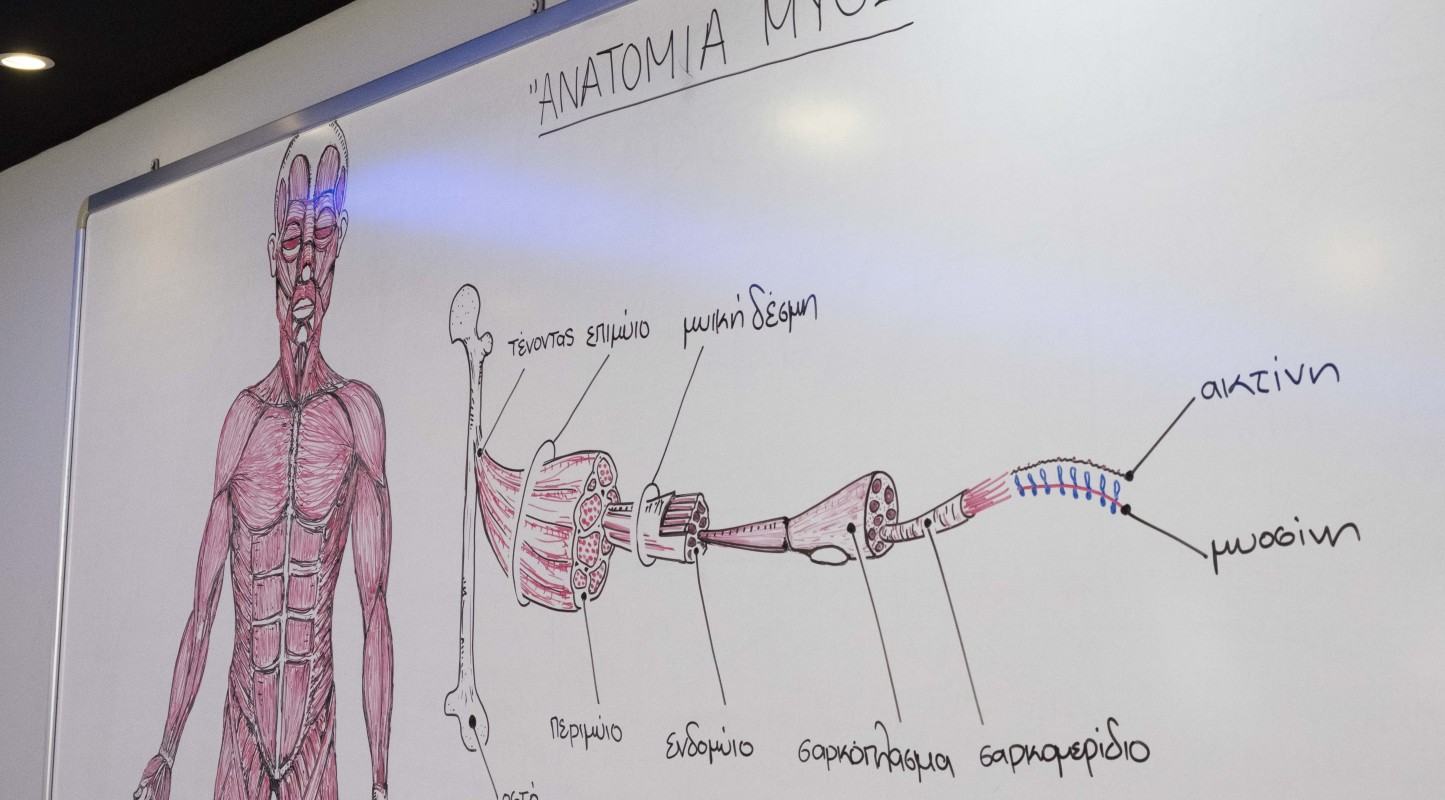 "ΑΝΑΤΟΜΙΑ
τένοντας επιμύιο μυική δέσμη
ακτίνη
μυοσίνη
περιμύιο ενδομύιο σαρκόπλασμα σαρκομερίδιο